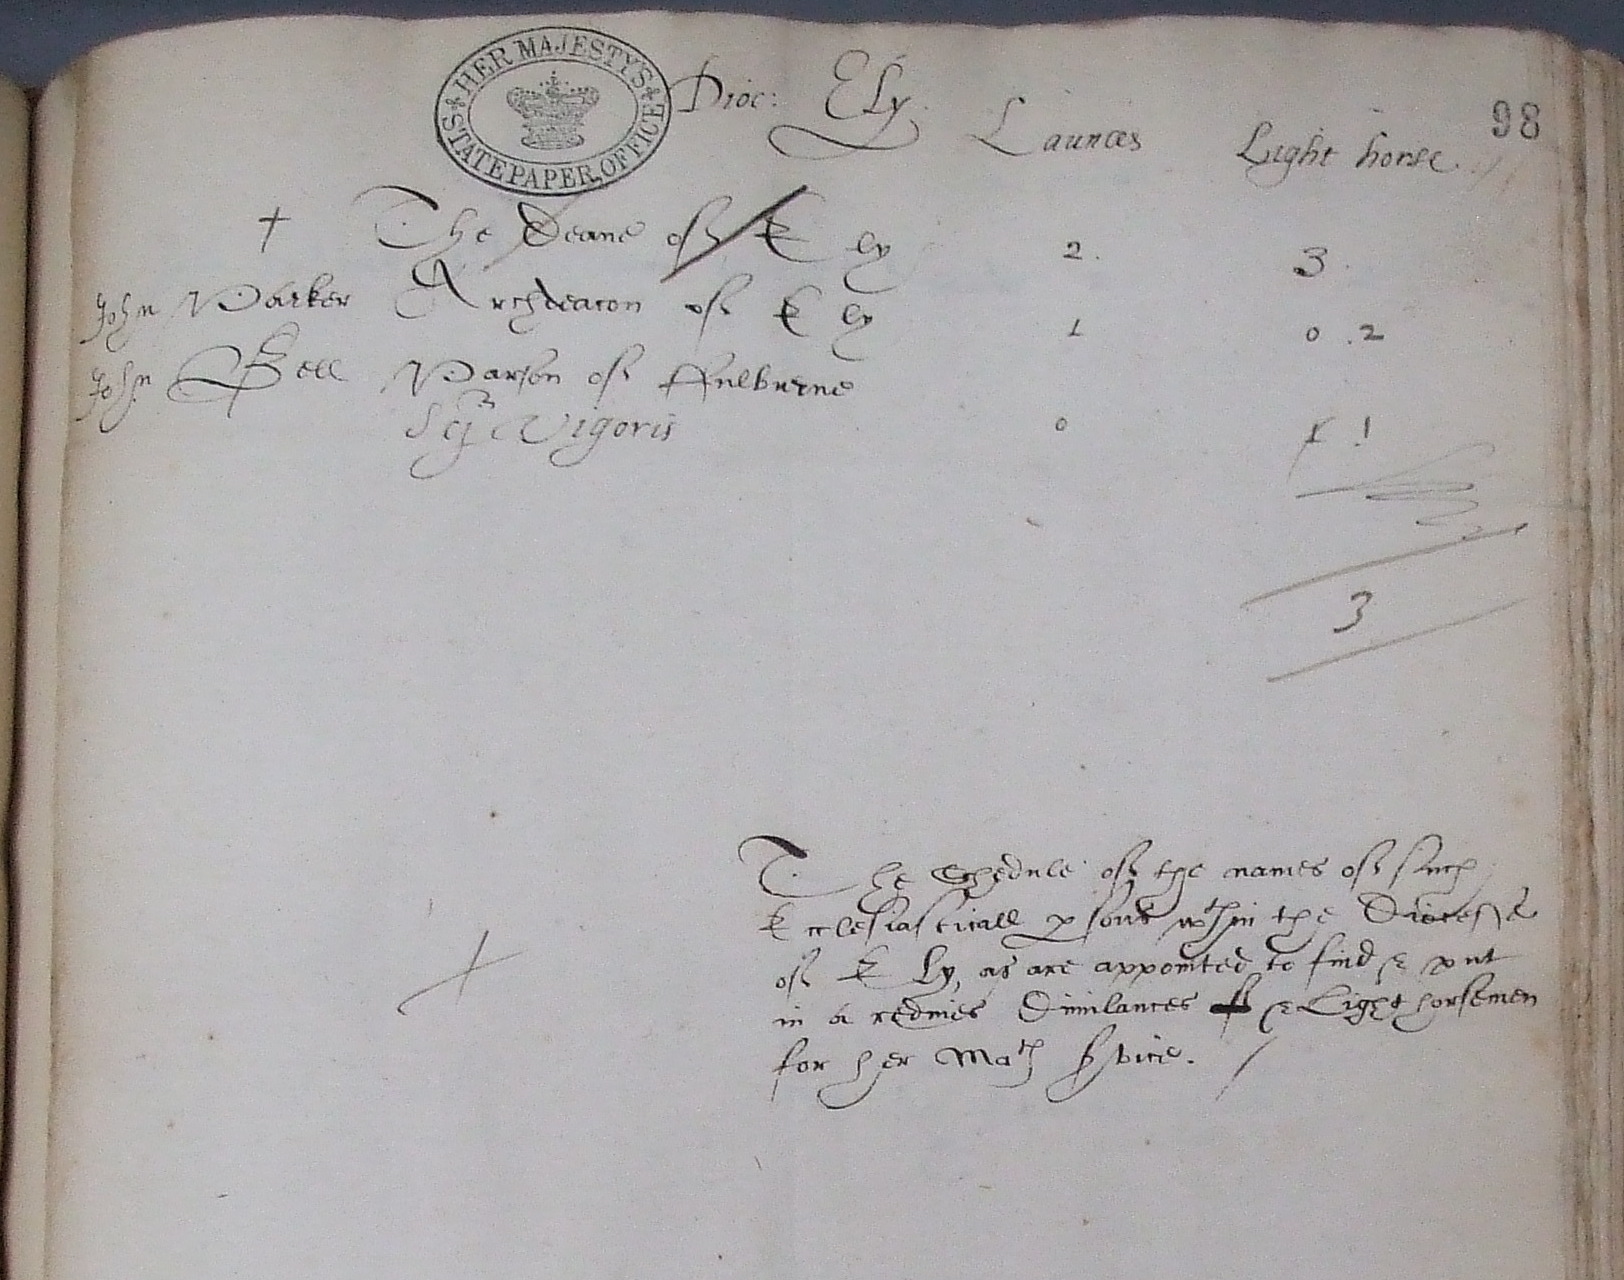 HER MAJESTY'S STATE PAPER OFFICE
Dioc: Ely.
Launces Light horse.
98
The Deane of Ely 2. 3.
John Parker Archdeacon of Ely 1 0 .2
John Bell Parson of Fulburne
Vigoris 0 1 . 1
3
The Schedule of the names of such
Ecclesiasticall psons wthin the Diocesse
of Ely, as are appointed to find & put
in a redines Dimilances & Light horsemen
for her Matis service.